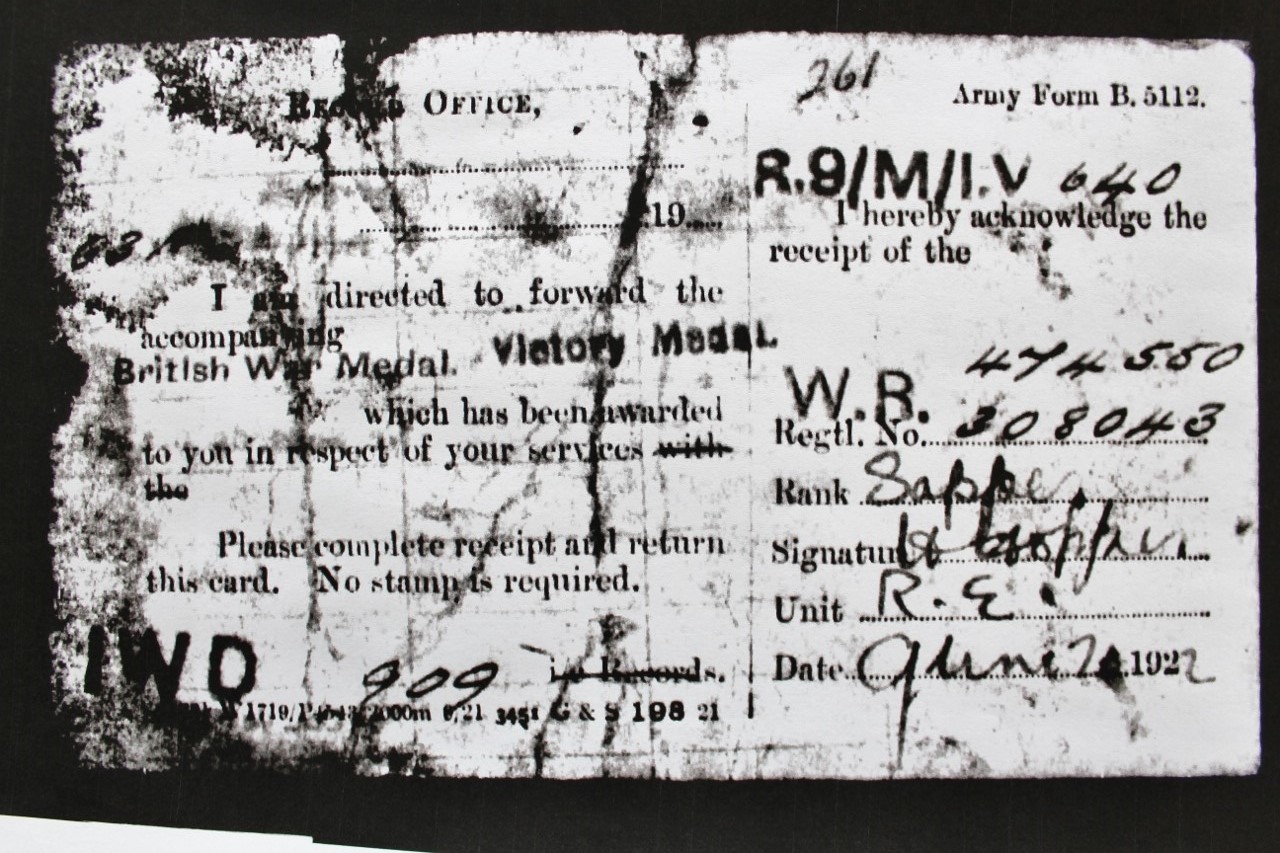 Record Office,
19
I am directed to forward the
accompanying
British War Medal. Victory Medal.
which has been awarded
to you in respect of your services with
the
Please complete receipt and return
this card. No stamp is required.
IWD 909 i/c Records.
1719/ 2000m 6/21 3451 G & S 198 21
261
Army Form B. 5112.
R.9/M/I.V 640
I hereby acknowledge the
receipt of the
474550
W.R.
Regtl. No. 308043
Rank Sapper
Signature
Unit R.E.
Date June 1922